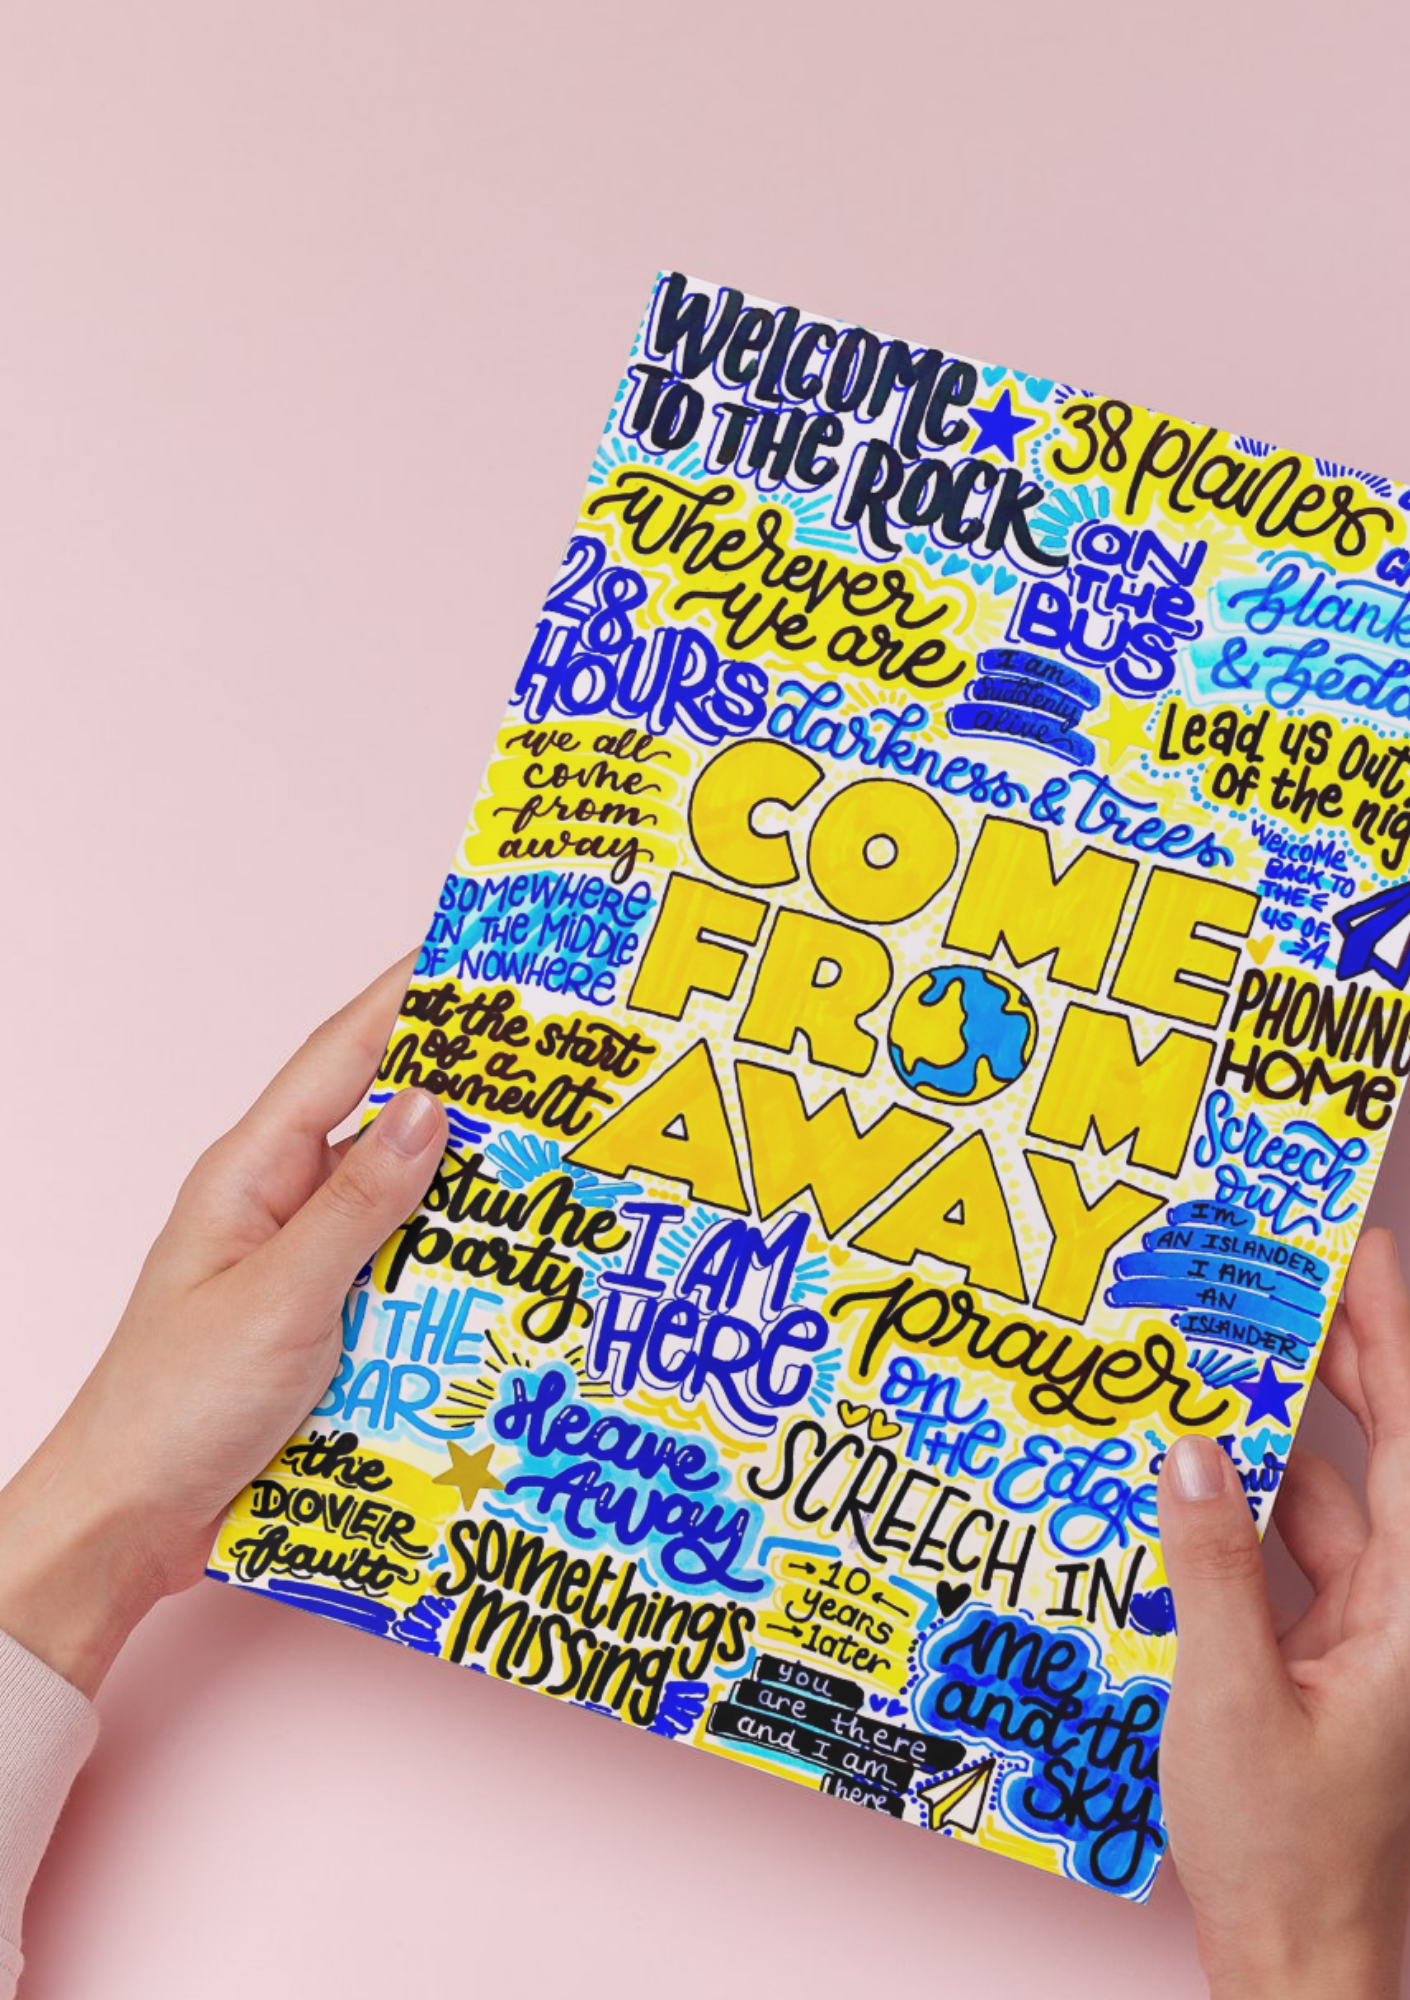 WELCOME
TO THE ROCK
38 planes
Wherever
we are
ON
THE
BUS
28
HOURS
I am
suddenly
alive
darkness & trees
Lead us out
of the
we all
come
from
away
COME
FROM
AWAY
WELCOME
BACK TO
THE
US OF
SOMEWHERE
IN THE MIDDLE
OF NOWHERE
PHONING
HOME
at the start
of a
moment
Screech
out
I'm
AN ISLANDER
I AM
AN
ISLANDER
party
I AM
HERE
prayer
THE
BAR
on
THE Edge
Heave
Away
SCREECH IN
the
DOVER
fault
something's
missing
10
years
later
you
are there
and I am
here
me
and
sky